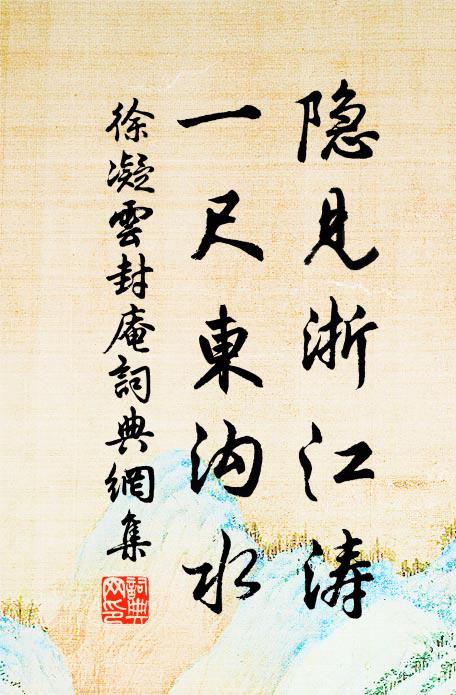 隐见浙江涛
一尺東沟水
徐凝雲封庵詞典網集
詞典網印